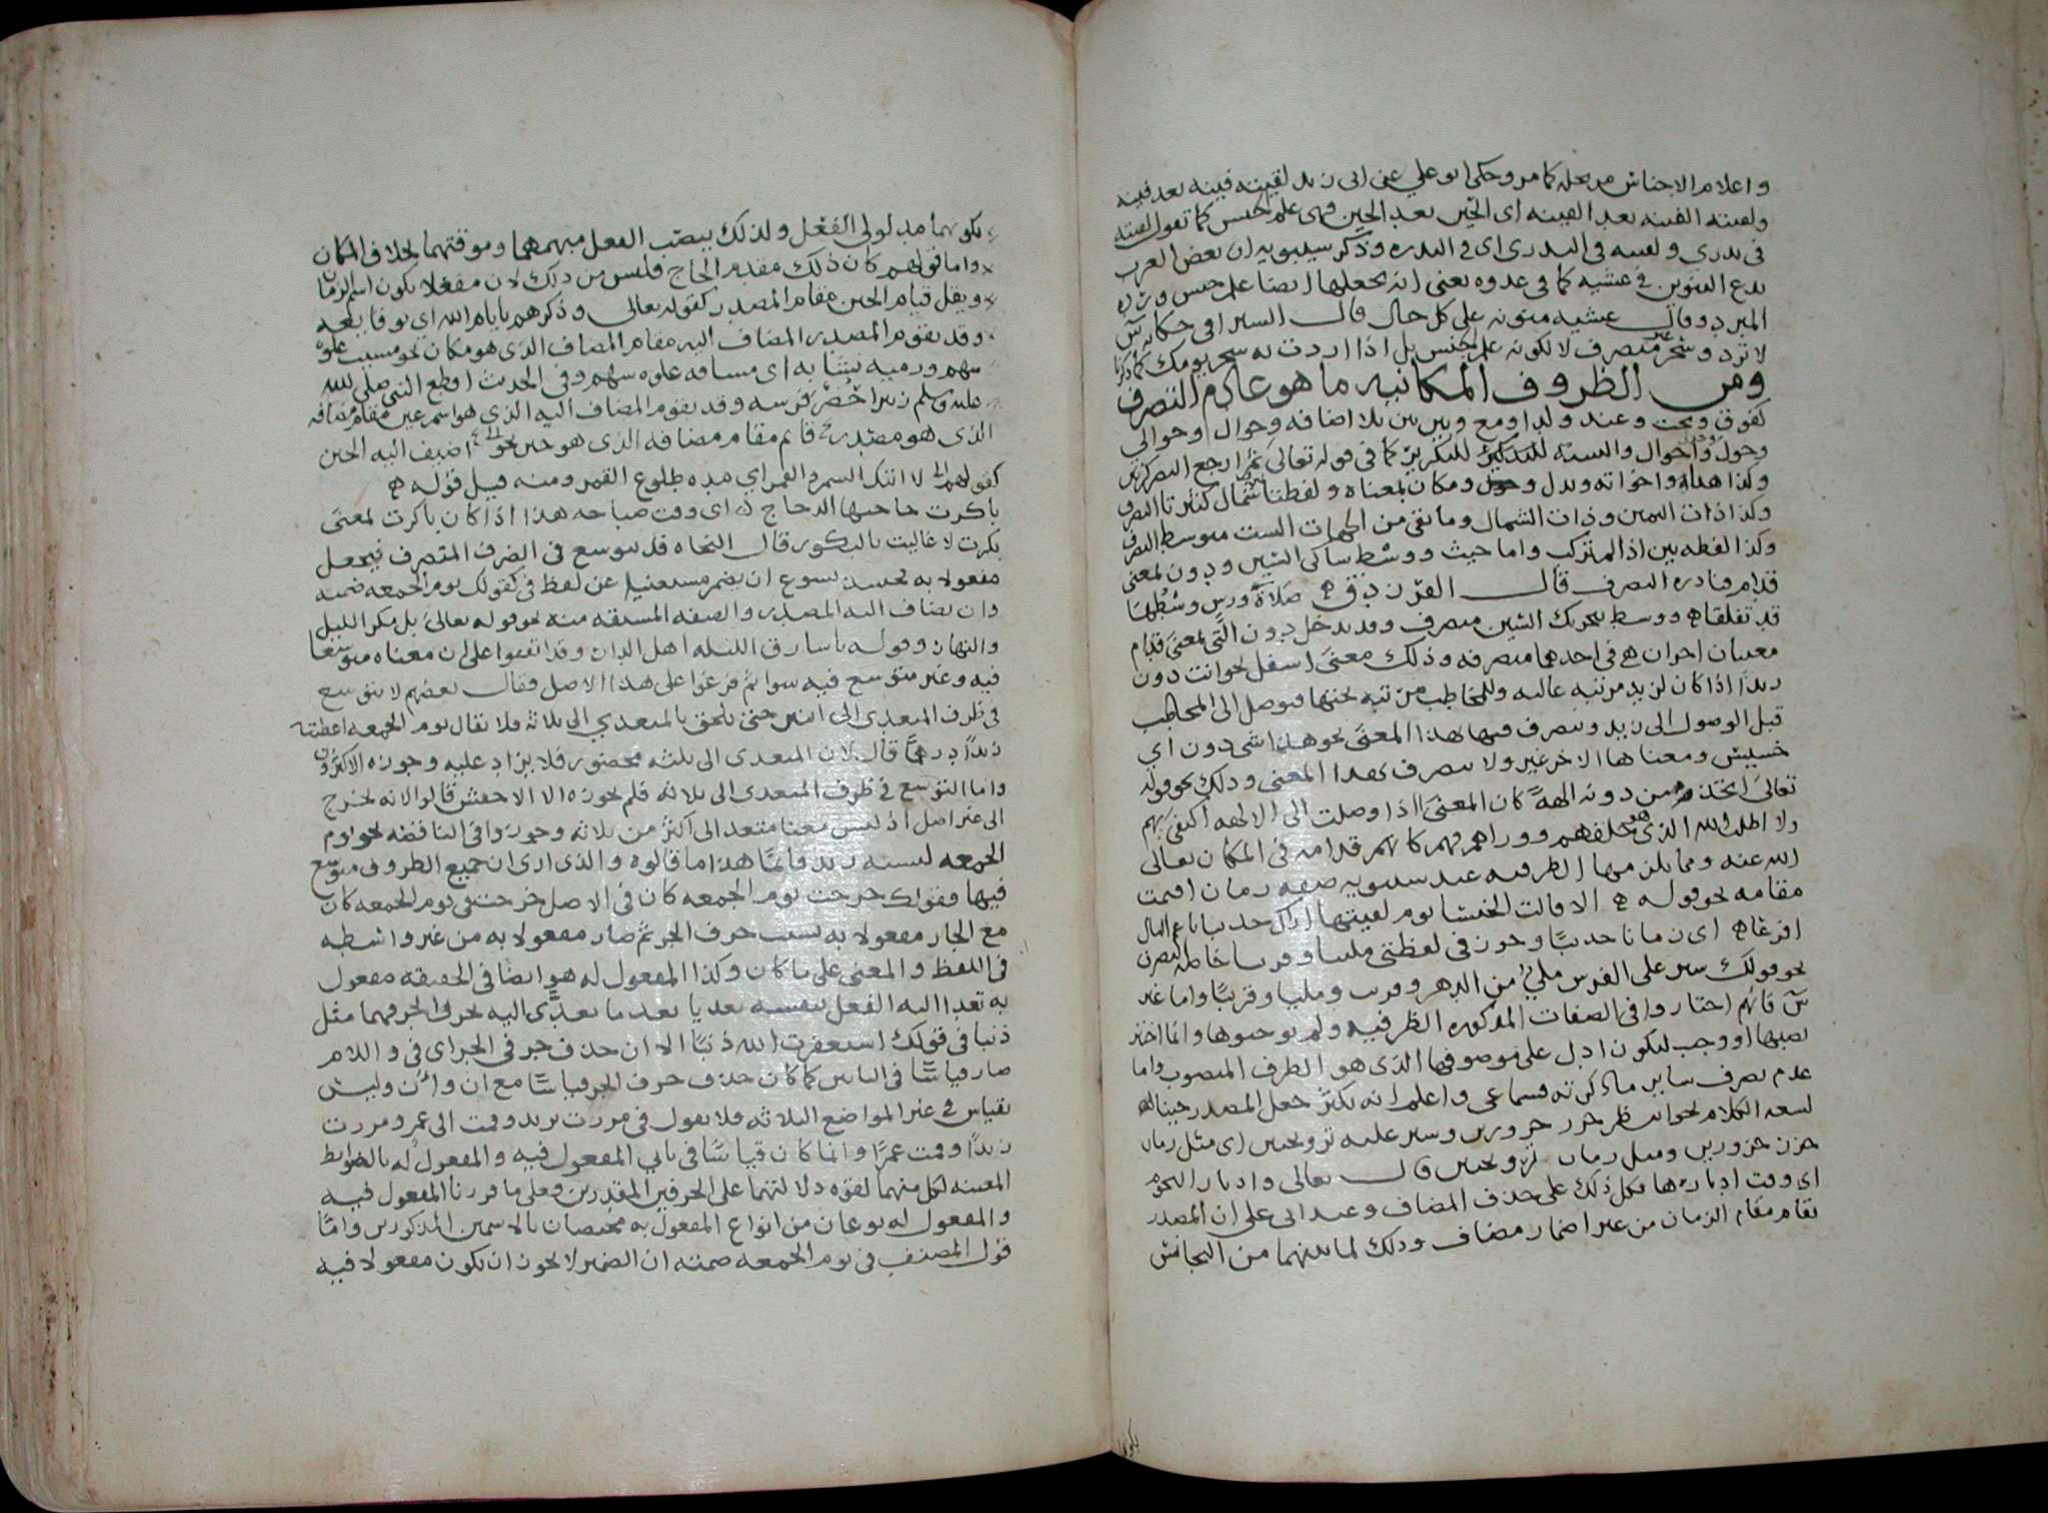 واعلام الاجناس مرتجله كما مر وحكى ابو علي عن ابى زيد لقيته فينه بعد فينه
ولقيته الفينه بعد الفينه اى الحين بعد الحين فهى علم الجنس كما تقول لقيته
فى ندرى ولقيته فى الندرى اى فى الندره وذكر سيبويه ان بعض العرب
يدع التنوين فى عشيه كما فى غدوه يعنى انه يجعلها ايضا علم جنس
المبرد وقال عشيه منونه على كل حال قال السيرافى حكايه س
لا ترد وسحر غير منصرف لا لكونه علم الجنس بل اذا اردت به سحر يومك كما ذكرنا
ومن الظروف المكانيه ما هو عادم التصرف
كفوق وتحت وعند ولدا ومع وبين بين بلا اضافه وحوال وحوالى
وحول واحوال والتثنيه للتكرير كما فى قوله تعالى ثم ارجع البصر كرتين
وكذا هنا واخواته وبدل ومكان بمعناه ولفظتا شمال كثيرتا التصرف
وكذا ذات اليمين وذات الشمال وما بقى من الجهات الست متوسط التصرف
وكذا لفظه بين اذا لم تتركب واما حيث ووسط ساكن السين ودون بمعنى
قدام فنادره التصرف قال الفرزدق ه صلاة ورس وسطها
قد تفلقا ه ووسط بتحريك السين متصرف وقد يدخل دون التى بمعنى قدام
معنيان اخران هى فى احدهما متصرفه وذلك معنى اسفل نحو انت دون
زيد اذا كان لزيد مرتبه عاليه وللمخاطب مرتبه تحتها فيوصل الى المخاطب
قبل الوصول الى زيد ويتصرف فيها بهذا المعنى نحو هذا شى دون اي
خسيس ومعناها الاخر غير ولا يتصرف بهذا المعنى وذلك نحو قوله
تعالى اتخذ من دونه الهة كان المعنى اذا وصلت الى الالهه اكتفى بهم
ولا اطلب الله الذى هو خلفهم ووراهم فهم كانهم قدامه فى المكان تعالى
الله عنه ومما يلزمها الظرفيه عند سيبويه صفه زمان اقيمت
مقامه نحو قوله ه الا قالت الخنسا يوم لقيتها اراك حديثا ناعم البال
افرعا ه اى زمانا حديثا وجوز فى لفظتى مليا وقريبا خاصه التصرف
نحو قولك سير على الفرس ملي من الدهر وقريب ومليا وقريبا واما غير
س فانهم اختاروا فى الصفات المذكوره الظرفيه ولم يوجبوها وانما اختير
نصبها او وجب ليكون ادل على موصوفها الذى هو الظرف المنصوب واما
عدم تصرف ساير ما ذكرته فسماعى واعلم انه يكثر جعل المصدر حينا
لسعه الكلام نحو انتظر جزر جزورين وسير عليه ترويحتين اى مثل زمان
جزر جزورين ومثل زمان ترويحتين قال تعالى وادبار النجوم
اى وقت ادبارها فكل ذلك على حذف المضاف وعند ابى على ان المصدر
يقام مقام الزمان من غير اضمار مضاف وذلك لما بينهما من التجانس
بكونهما
بكونهما مدلولى الفعل ولذلك ينصب الفعل مبهمهما وموقتهما بخلاف المكان
واما قولهم كان ذلك مقدم الحاج فليس من ذلك لان مفعلا يكون اسم الزمان
ويقل قيام الحين مقام المصدر كقوله تعالى وذكرهم بايام الله اى بوقايعه
وقد يقوم المصدر المضاف اليه مقام المضاف الذى هو مكان نحو مسيت غلوه
سهم ورميه نشابه اى مسافه غلوه سهم وفى الحديث اقطع النبى صلى الله
عليه وسلم زبيرا حضر فرسه وقد يقوم المضاف اليه الذى هو اسم عين مقام مضافه
الذى هو مصدر قايم مقام مضافه الذى هو حين اضيف اليه الحين
كقولهم لا اتيك السمر والقمر اي مده طلوع القمر ومنه قيل قوله ه
باكرت حاجتها الدجاج اى وقت صياحه هذا اذا كان باكرت بمعنى
بكرت لا غالبت بالبكور قال النحاه قد يتوسع فى الظرف المتصرف فيجعل
مفعولا به فحينئذ يسوغ ان يضمر مستغنيا عن لفظ فى كقولك يوم الجمعه صمته
وان يضاف اليه المصدر والصفه المشتقه منه نحو قوله تعالى بل مكر الليل
والنهار وقوله يا سارق الليله اهل الدار وقد اتفقوا على ان معناه متوسعا
فيه وغير متوسع فيه سوا ثم فرعوا على هذا الاصل فقال بعضهم لا يتوسع
فى ظرف المتعدى الى اثنين حتى يلحق بالمتعدى الى ثلاثه فلا يقال يوم الجمعه اعطيته
زيدا درهما قال لان المتعدى الى ثلثه محصور فلا يزاد عليه وجوزه الاكثرون
واما التوسع فى ظرف المتعدى الى ثلاثه فلم يجوزه الا الاخفش قالوا لانه يخرج
الى غير اصل اذ ليس معنا متعد الى اكثر من ثلاثه وجوزوا فى الناقصه نحو يوم
الجمعه ليسته زيد قايما هذا ما قالوه والذى ارى ان جميع الظروف متوسع
فيها فقولك خرجت يوم الجمعه كان فى الاصل خرجت فى يوم الجمعه كان
مع الجار مفعولا به بسبب حرف الجر ثم صار مفعولا به من غير واسطه
فى اللفظ والمعنى على ما كان وكذا المفعول له هو ايضا فى الحقيقه مفعول
به تعدا اليه الفعل بنفسه بعد ما تعدى اليه بحرف الجر فهما مثل
ذنبا فى قولك استغفرت الله ذنبا الا ان حذف حرفى الجر اى فى واللام
صار قياسا فى البابين كما كان حذف حرف الجر قياسا مع ان وان وليس
بقياس فى غير المواضع الثلاثه فلا يقول فى مررت بزيد وقمت الى عمرو مررت
زيدا وقمت عمرا وانما كان قياسا فى بابى المفعول فيه والمفعول له بالضوابط
المعينه لكل منهما لقوه دلالتهما على الحرفين المقدرين وعلى ما قررنا المفعول فيه
والمفعول له نوعان من انواع المفعول به مختصان بالاسمين المذكورين واما
قول المصنف فى يوم الجمعه صمته ان الضمير لا يجوز ان يكون مفعولا فيه